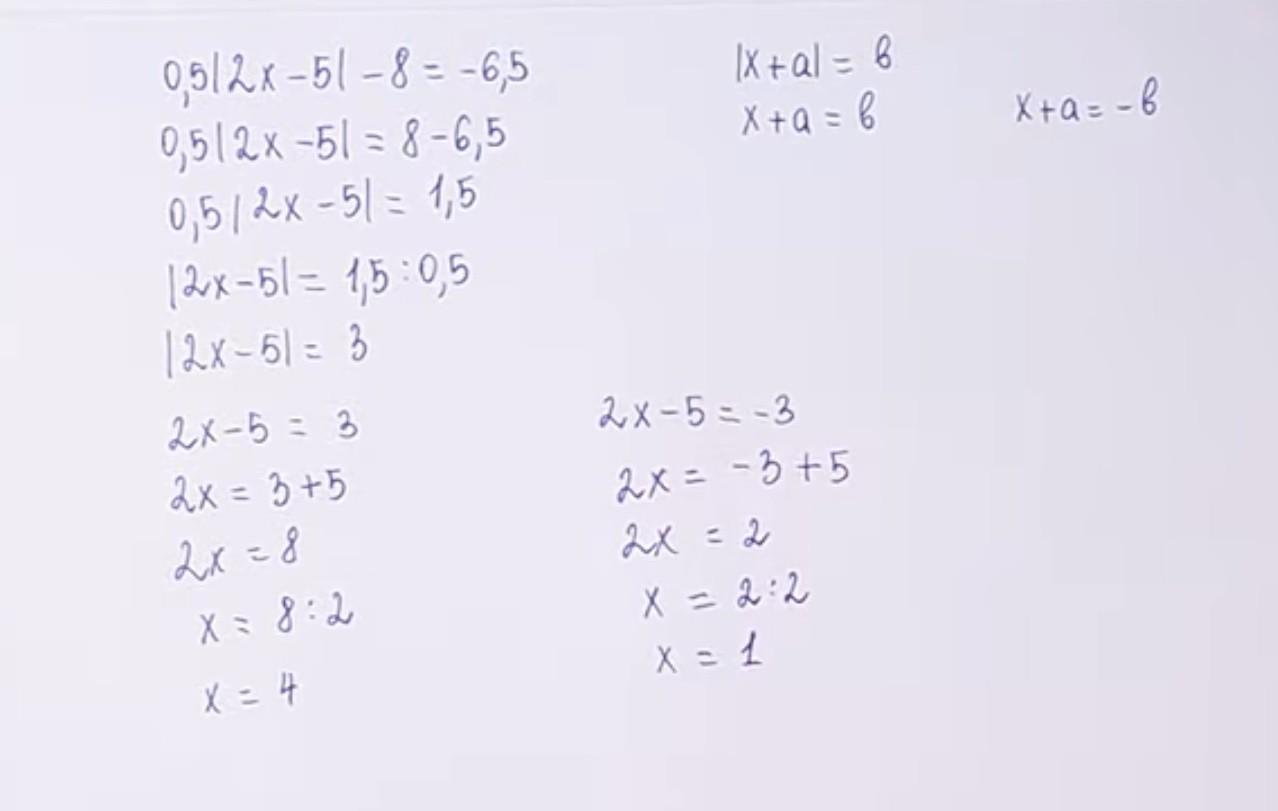 0,5|2x-5| - 8 = -6,5
0,5|2x-5| = 8-6,5
0,5|2x-5| = 1,5
|2x-5| = 1,5:0,5
|2x-5| = 3
|x+a| = в
x+a = в
x+a = -в
2x-5 = 3
2x = 3+5
2x = 8
x = 8:2
x = 4
2x-5 = -3
2x = -3+5
2x = 2
x = 2:2
x = 1